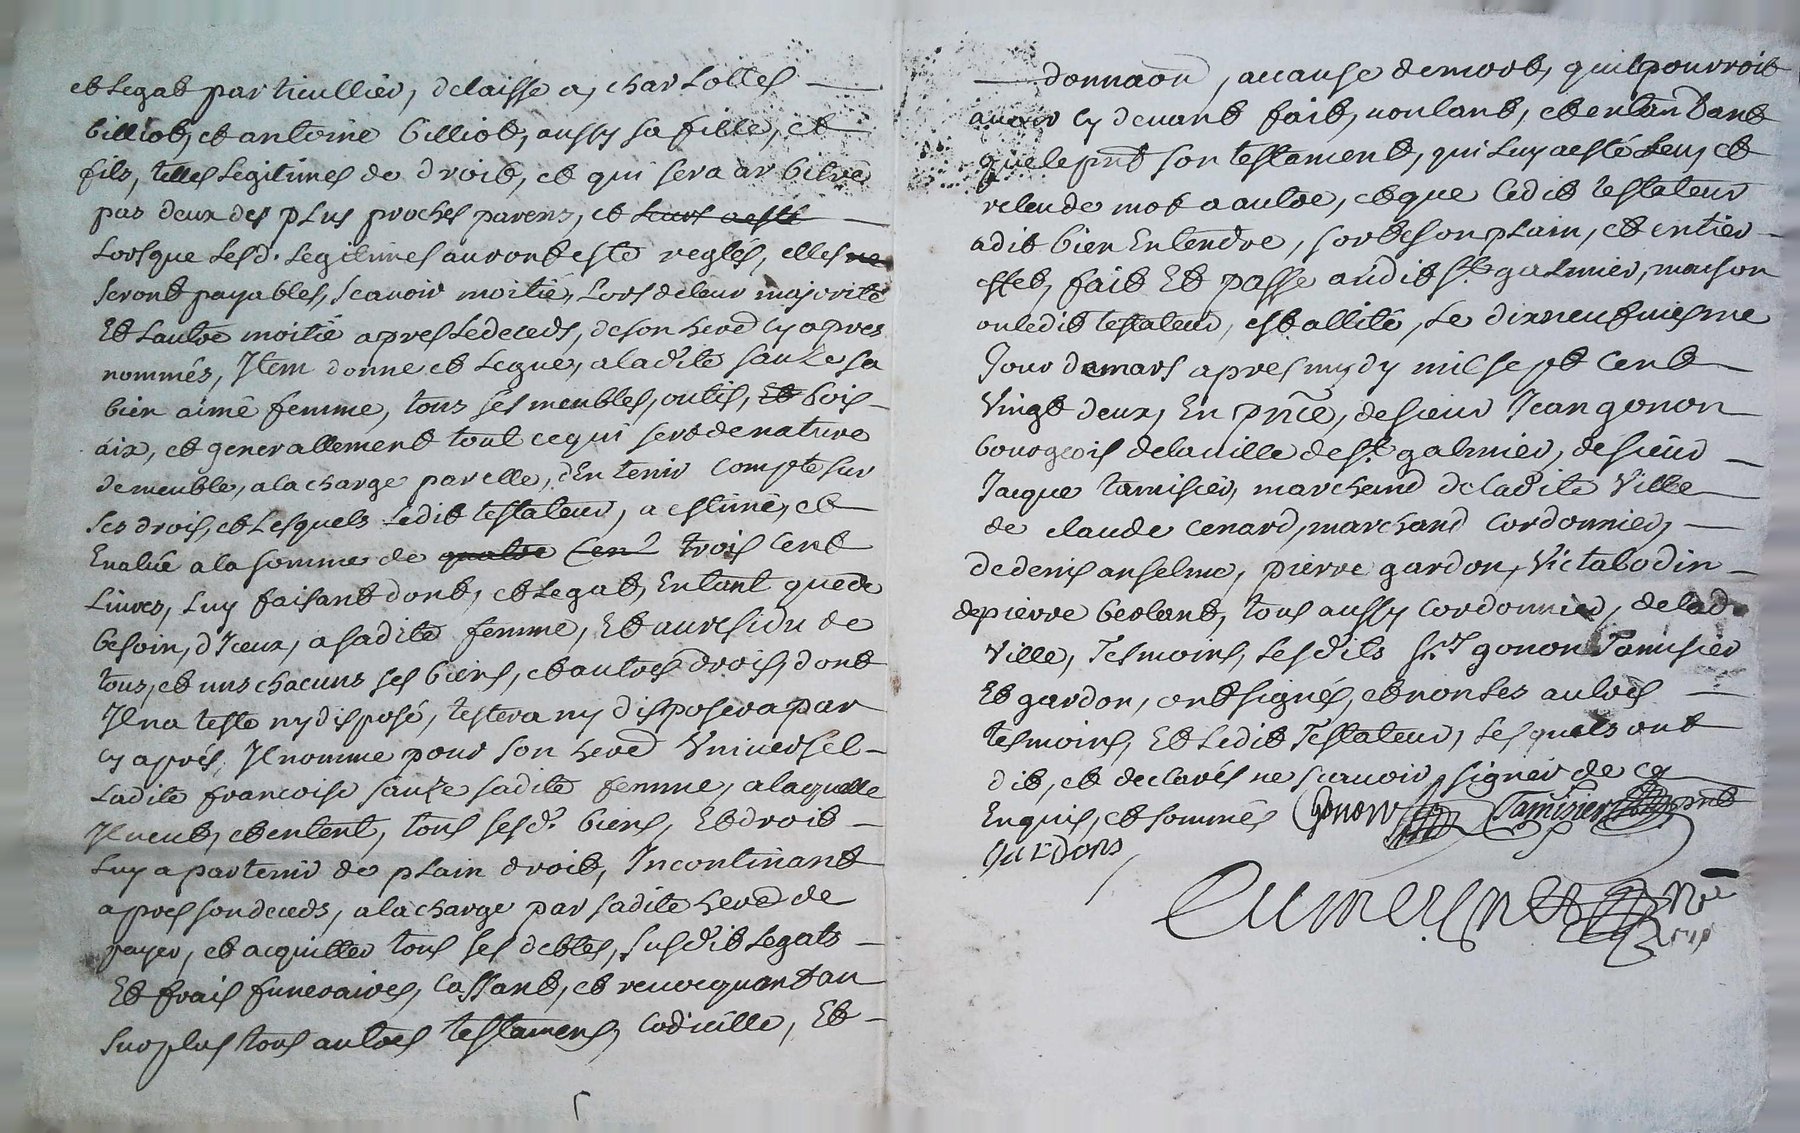 et legat particullier, delaisse a, charlottes
billiot, et antoine billiot, aussy sa fille, et
fils, telles legitimes de droit, et qui sera arbitré
par deux des plus proches parens, et
Lorsque lesd. legitimes auront esté reglés, elles
seront payables, scavoir moitié, lors de leur majorité
Et l'autre moitié apres le deceds, de son hered cy apres
nommés, Item donne et legue, a ladite sauze sa
bien aimé femme, tous ses meubles, outis, Et bois
aix, et generallement tout ce qui sert de nature
de meuble, a la charge par elle, d'En tenir compte sur
ses drois, et lesquels ledit testateur, a estimé, et
Evalué a la somme de quatre Cent trois Cent
Livres, luy faisant dont, et legat, Entant que de
besoin, d'Iceux, a sadite femme, Et au residu de
tous, et uns chacuns ses biens, et autres drois, dont
Il na testé ny disposé, testera ny disposera par
cy aprés, Il nomme pour son hered Universel
Ladite francoise sauze sadite femme, a laquelle
Il veut, et entent, tous sesd. biens, Et droit
luy apartenir de plain droit, Incontinant
apres son deceds, a la charge par sadite hered de
payer, et acquitter tous ses debtes, susdit legats
Et frais funeraires, Cassant, et revocquant au
surplus tous autres testamens, Codicille, Et
donnaon, a cause de mort, quil pourroit
avoir cy devant fait, voulant, et entandant
que le pnt son testament, qui luy a esté leu, et
releu de mot a autre, et que ledit testateur
a dit bien Entendre, sorte son plain, et entier
effet, fait Et passé audit St. galmier, maison
ou ledit testateur, est allité, le dixneufviesme
Jour de mars apres mydy mil sept Cent
Vingt deux, En pnce, de sieur Jean gonon
bourgeois de la ville de St. galmier, de sieur
Jacque tamisier, marchand de ladite Ville
de claude cenard, marchand Cordonnier,
de denis anselme, pierre gardon, Victabodin
de pierre berlant, tous aussy Cordonnier, de lad.
Ville, Tesmoins, lesdits Srs gonon Tamisier
Et gardon, ont signés, et non les autres
tesmoins, Et ledit Testateur, lesquels ont
dit, et declarés ne scavoir signer de ce
Enquis, et sommés Gonon Tamisier pnt